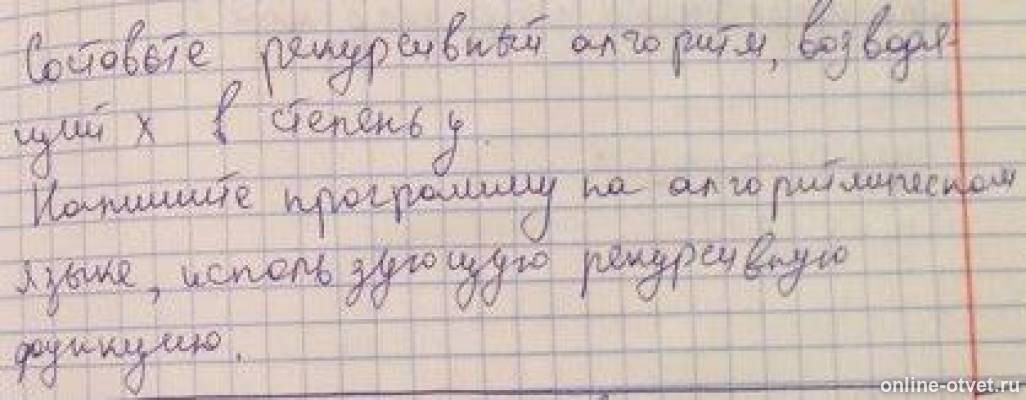 Состовьте рекурсивный алгоритм, возводя-
щий x в степень y.
Напишите программу на алгоритмическом
языке, использующую рекурсивную
функцию.
online-otvet.ru